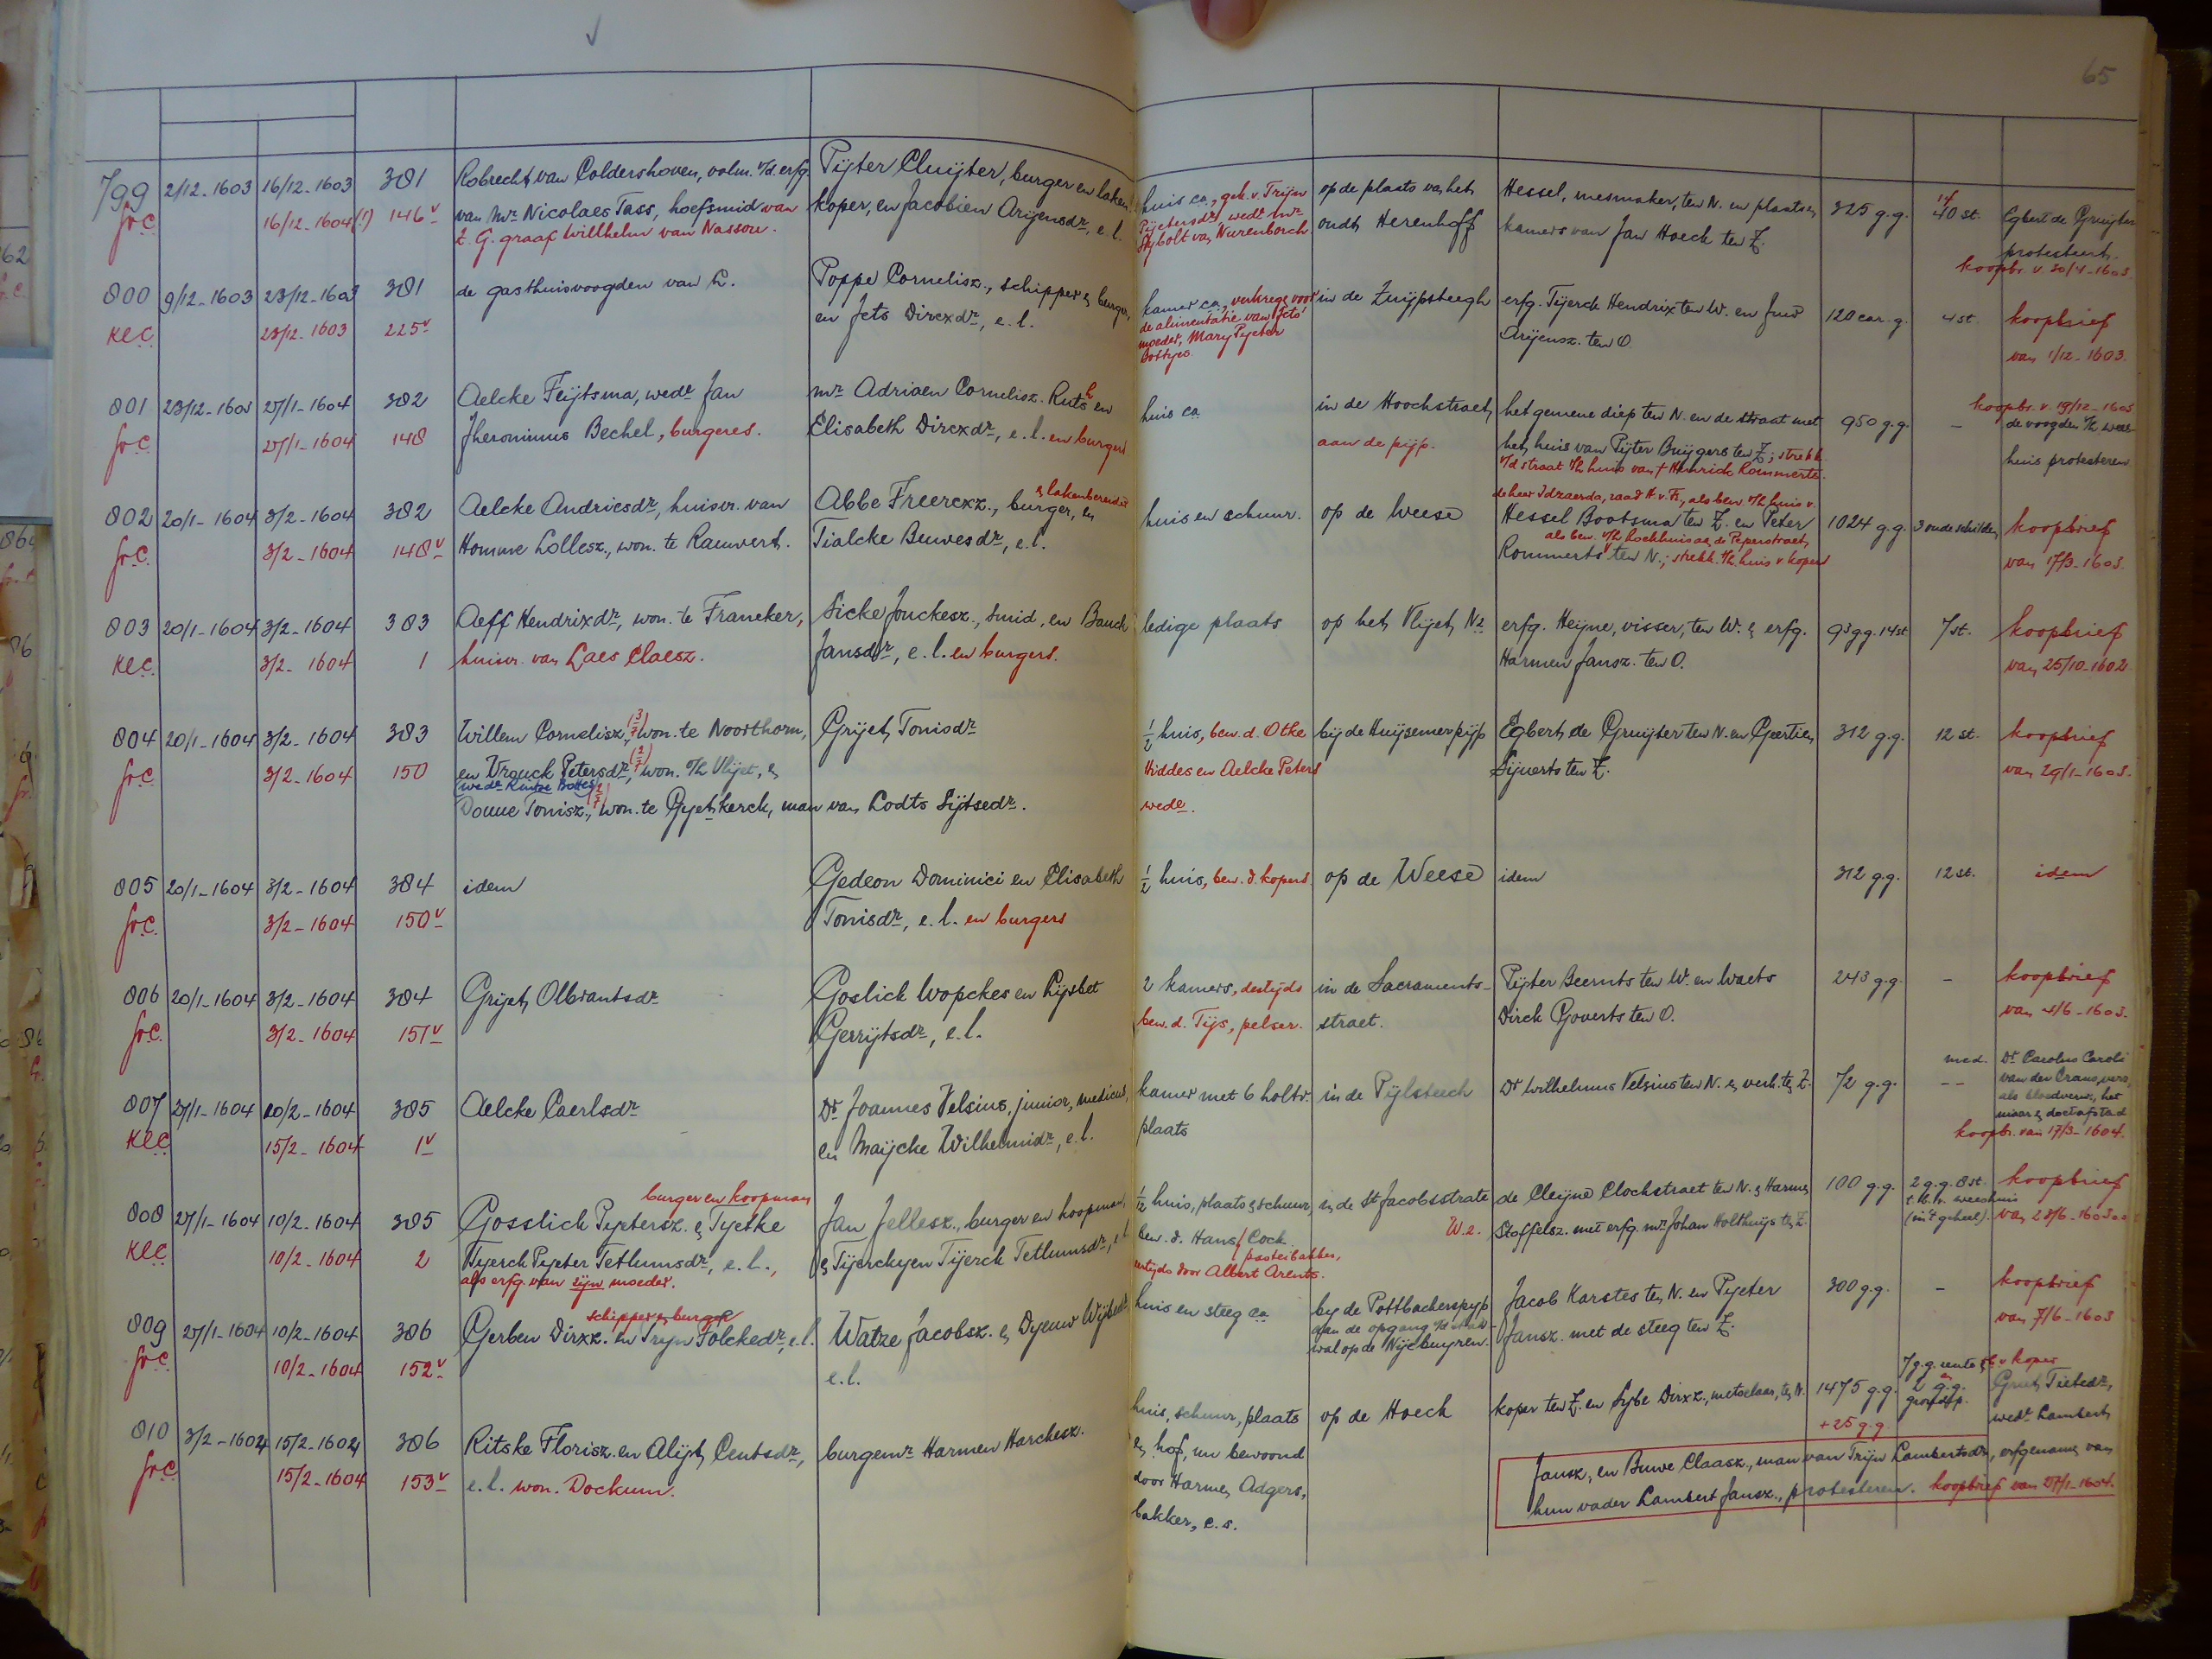 65
799 2/12-1603 16/12-1603 381 Robrecht van Coldershoven, volm. v/d. erfg. Pijter Cluijter, burger en laken huis ca, geb. v. Trijn op de plaats van het Hessel, mesmaker, ten N. en plaats en 325 g.g. 40 st. Egbert de Gruijter
fo.C. 16/12-1604(!) 146v van Mr. Nicolaes Tass, hoefsmid van koper, en Jacobien Arijensdr., e.l. Pijetersdr., wede. Mr. oudt Herenhoff kamers van Jan Hoeck ten Z. protesteert.
Z. G. graaf Willhelm van Nassou. Sybolt van Nurenborch koopbr. v. 30/4-1603
800 9/12-1603 23/12-1603 381 de gasthuisvoogden van L. Poppe Cornelisz., schipper en burger, kamer ca, verkregen voor in de Zuijpsteegh erfg. Tijerck Hendrix ten W. en Juw 120 car. g. 4 st. koopbrief
KeC. 23/12-1603 225v en Jets Dircxdr., e.l. de alimentatie van Jets' Arijensz. ten O. van 1/12-1603.
moeder, Mary Pyeter
Bottyes
801 23/12-1603 27/1-1604 382 Aelcke Feijtsma, wede. Jan mr. Adriaen Cornelisz. Ruts en huis ca in de Hoochstraet, het gemene diep ten N. en de straat met 950 g.g. - koopbr. v. 19/12-1603
fo.C. 27/1-1604 148 Jheronimus Bechel, burgeres. Elisabeth Dircxdr., e.l. en burgers aan de pijp. het huis van Pijter Buijgers ten Z.; strekk. de voogden v/h wees-
v/d straat t/h huis van + Henrick Rommerts. huis protesteren
802 20/1-1604 3/2-1604 382 Aelcke Andriesdr., huisvr. van Abbe Freerckz., burger, en lakenbereider en huis en schuur. op de Weese de heer Idzaerda, raad H. v. Fr., als bew. v/h huis v.
Hessel Bootsma ten Z. en Peter 1024 g.g. 3 oude schilden koopbrief
fo.C. 3/2-1604 148v Homme Lollesz., won. te Rauwert. Tialcke Buwesdr., e.l. als bew. v/h hoekhuis aan de Peperstraet,
Rommerts ten N.; strekk. t/h huis v. koper van 17/3-1603.
803 20/1-1604 3/2-1604 383 Aeff Hendrixdr., won. te Franeker, Sicke Jouckesz., smid, en Bauck ledige plaats op het Vlijet, Nz erfg. Heijne, visser, ten W. en erfg. 93 g.g. 14 st 7 st. koopbrief
KeC. 3/2-1604 1 huisvr. van Laes Claesz. Jansdr., e.l. en burgers. Harmen Jansz. ten O. van 25/10-1602
804 20/1-1604 3/2-1604 383 Willem Cornelisz., won. te Noorthorn, Grijet Tonisdr. 1/2 huis, bew. d. Otke bij de Huijsemerpijp Egbert de Gruijter ten N. en Geertien 312 g.g. 12 st. koopbrief
fo.C. 3/2-1604 150 en Vrouck Petersdr., won. t/h Vlijet, en Hiddes en Aelcke Peters Sijuerts ten Z. van 29/1-1603.
(wede. Rintse Bottes)
Douue Tonisz., won. te Gyetskerck, man van Lodts Sijtsedr. wede.
805 20/1-1604 3/2-1604 384 idem Gedeon Dominici en Elisabeth 1/2 huis, bew. d. kopers. op de Weese idem 312 g.g. 12 st. idem
fo.C. 3/2-1604 150v Tonisdr., e.l. en burgers
806 20/1-1604 3/2-1604 384 Grijet Olbrantsdr. Goslick Wopckes en Lijsbet 2 kamers, destijds in de Sacraments- Pijter Beernts ten W. en Waets 243 g.g. - koopbrief
fo.C. 3/2-1604 151v Gerrijtsdr., e.l. bew. d. Tijs, pelser. straet. Dirck Goverts ten O. van 4/6-1603.
807 27/1-1604 10/2-1604 385 Aelcke Caerlsdr. Dr. Joannes Velsius, junior, medicus, kamer met 6 holtr. in de Pijlsteech Dr. Wilhelmus Velsius ten N. en verk. ten Z. 72 g.g. -- med. Dr. Carolus Caroli
van der Crans, vers.
als bloedverw., het
KeC 15/2-1604 1v en Maijcke Wilhelmidr., e.l. plaats niaar en doet afstad
koopbr. van 17/3-1604.
808 27/1-1604 10/2-1604 385 Gosslick Pyetersz. burger en koopman en Tyetke Jan Jellesz., burger en koopman, 1/2 huis, plaats en schuur, in de St Jacobsstrate de Cleijne Clockstraet ten N. en Harmen 100 g.g. 2 g.g. 8 st. koopbrief
t.b.v. weeshuis
KeC 10/2-1604 2 Tyerck Pyeter Tetlumsdr., e.l., en Tijerckyen Tijerck Tetlumsdr., e.l. bew. d. Hans Cock, pasteibakker, Wz. Stoffelsz. met erfg. mr. Johan Holthuijs ten Z. (in 't geheel). van 23/6-1603
als erfg. van zijn moeder. eertijds door Albert Arents.
809 27/1-1604 10/2-1604 386 Gerben Dirxz. schipper en burger en Trijn Folckedr., e.l. Watze Jacobsz. en Dyeuw Wijbedr., huis en steeg ca bij de Pottbackerspyp Jacob Karstes ten N. en Pyeter 300 g.g. - koopbrief
fo.C. 10/2-1604 152v e.l. aan de opgang v/d
wal op de Nijebuyren. Jansz. met de steeg ten Z. van 7/6-1603
810 3/2-1604 15/2-1604 386 Ritske Florisz. en Alijt Centsdr., burgemr. Harmen Harckesz. huis, schuur, plaats op de Hoeck koper ten Z. en Sybe Dirxz., metselaar, ten N. 1475 g.g. 7 g.g. rente t.b.v. koper
+25 g.g. en 2 g.g. grondp. Griet Tietedr.,
wede. Lambert
fo.C 15/2-1604 153v e.l. won. Dockum. en hof, nu bewoond Jansz., en Buwe Claasz., man van Trijn Lambertsdr., erfgenamen van
door Harmen Adgers, hun vader Lambert Jansz., protesteren. koopbrief van 27/1-1604.
bakker, e.s.